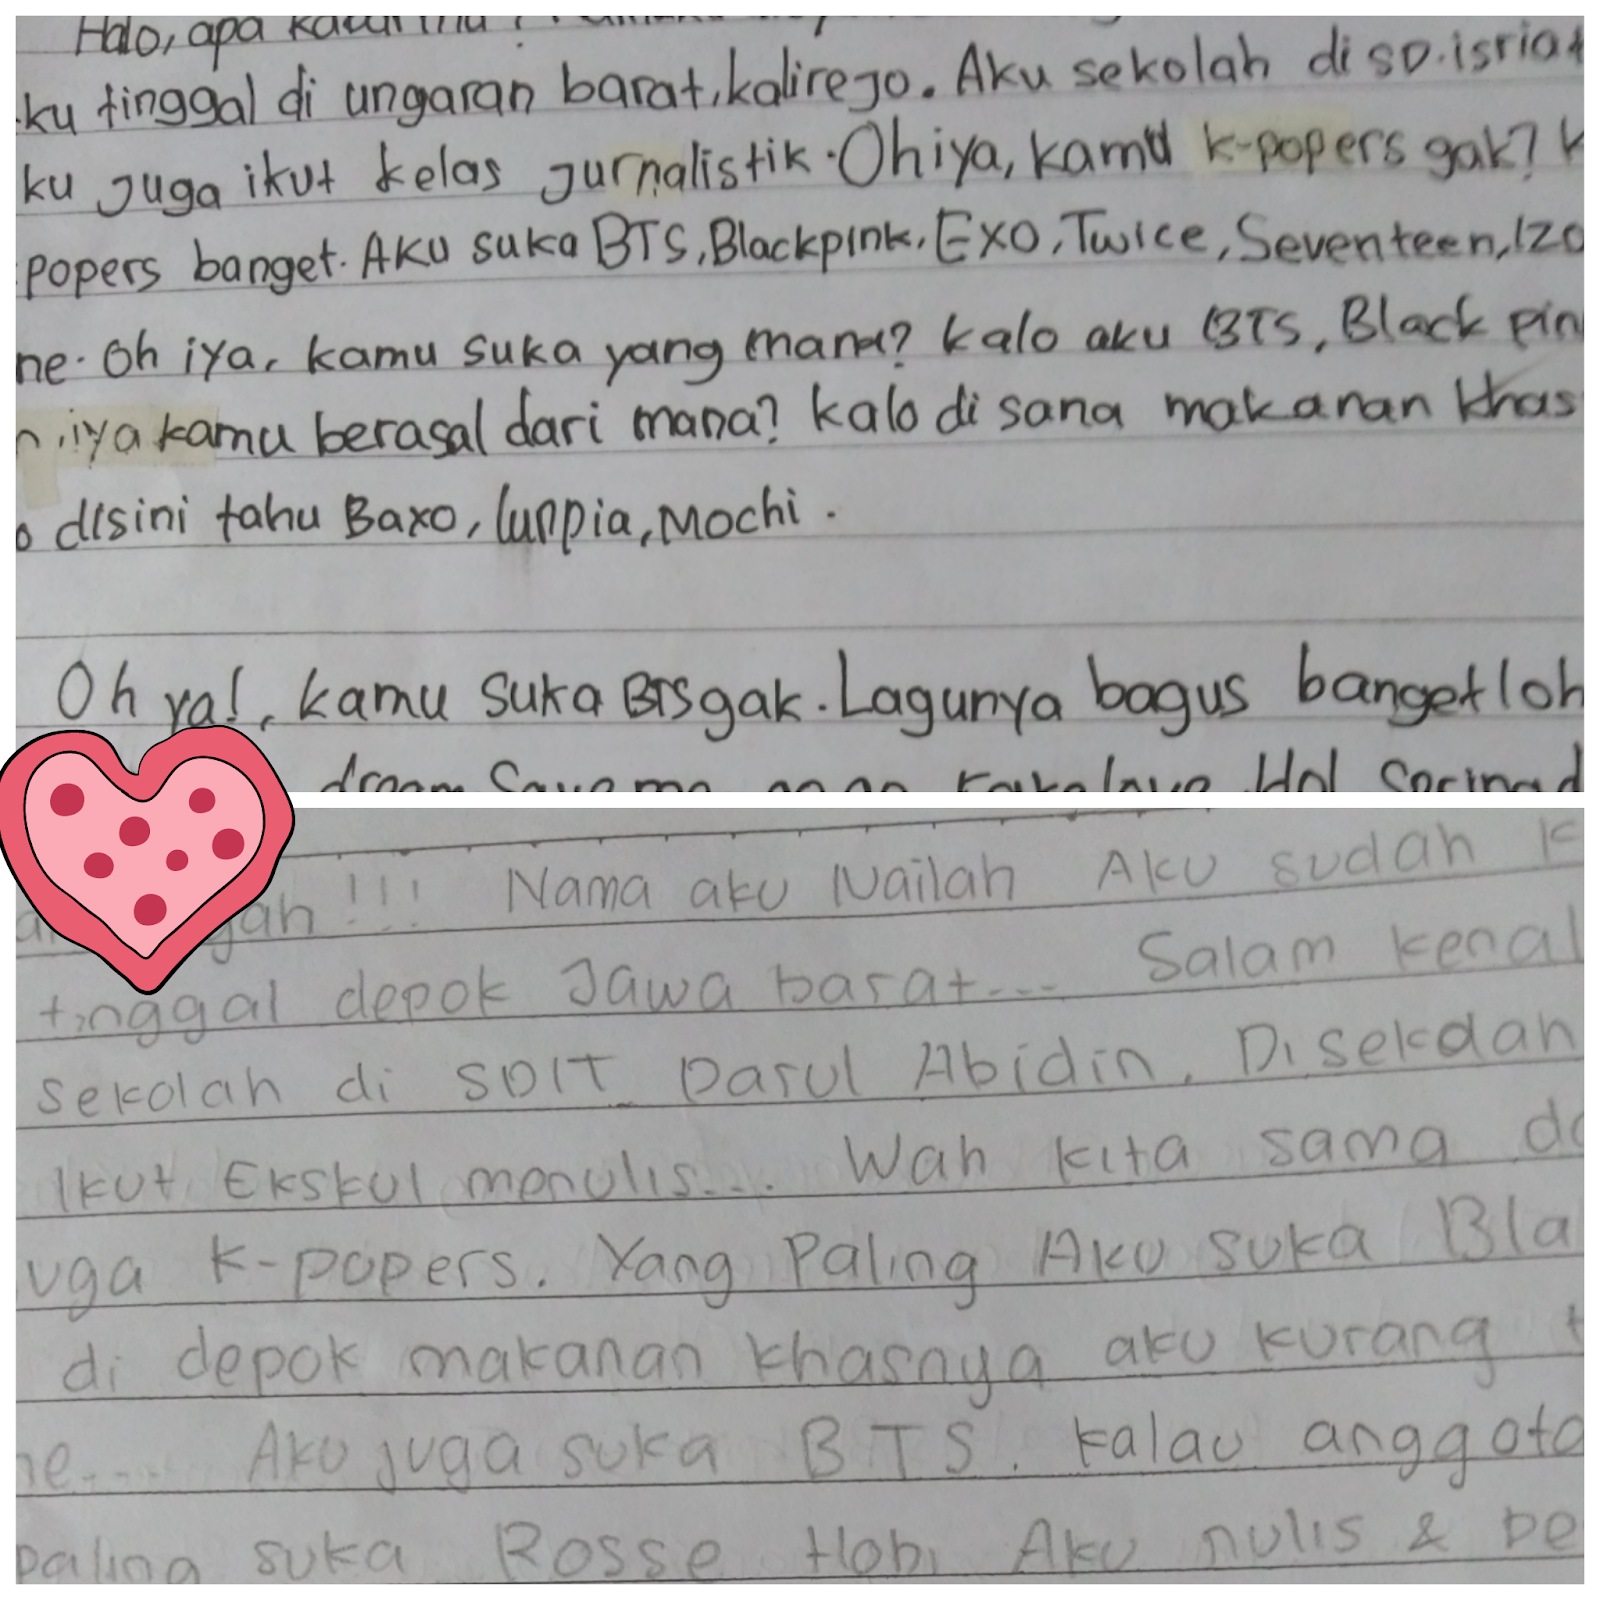 Halo, apa
ku tinggal di ungaran barat, kalirejo. Aku sekolah di SD. isriat
ku juga ikut kelas jurnalistik. Oh iya, kamu k-popers gak? K
popers banget. Aku suka BTS, Blackpink, EXO, Twice, Seventeen, IZO
ne. Oh iya, kamu suka yang mana? kalo aku BTS, Black pin
iya kamu berasal dari mana? kalo di sana makanan khas
o disini tahu Baxo, lunpia, Mochi.
Oh ya!, kamu suka BTS gak. Lagunya bagus banget loh
dream
ah!!! Nama aku Nailah Aku sudah K
tinggal depok Jawa barat... Salam kenal
sekolah di SDIT Darul Abidin. Disekolah
Ikut Ekskul menulis... Wah kita sama do
uga K-popers. Yang Paling Aku suka Bla
di depok makanan khasnya aku kurang t
ne.... Aku juga suka BTS. kalau anggota
paling suka Rosse Hobi Aku nulis & be